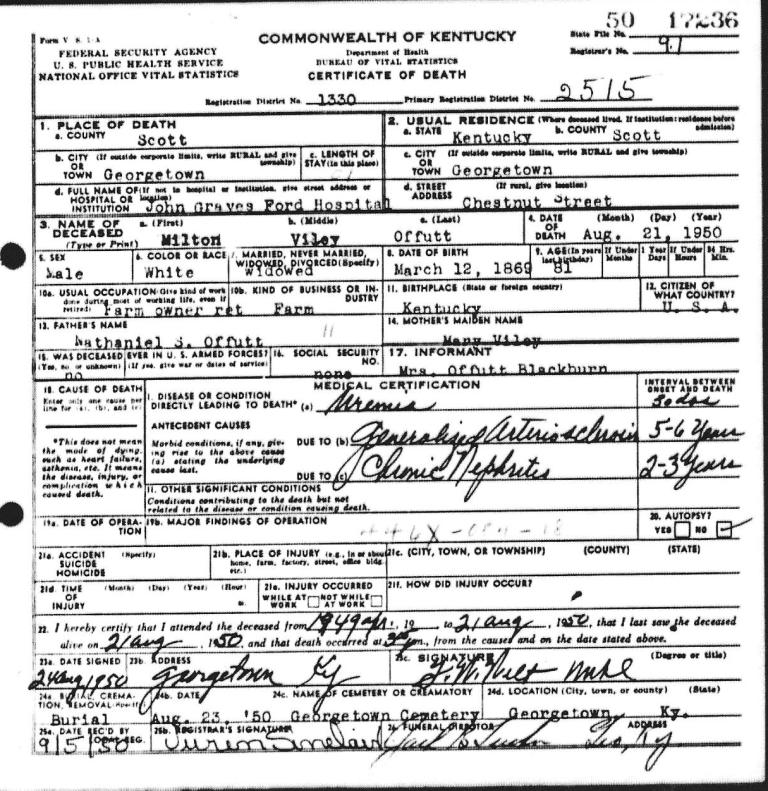 50 17236
Form V. S. 1-A
COMMONWEALTH OF KENTUCKY
State File No.
FEDERAL SECURITY AGENCY
U. S. PUBLIC HEALTH SERVICE
NATIONAL OFFICE VITAL STATISTICS
Department of Health
BUREAU OF VITAL STATISTICS
CERTIFICATE OF DEATH
Registrar's No. 91
Registration District No. 1330 Primary Registration District No. 2515
1. PLACE OF DEATH
a. COUNTY Scott
2. USUAL RESIDENCE (Where deceased lived. If institution: residence before admission)
a. STATE Kentucky b. COUNTY Scott
b. CITY (If outside corporate limits, write RURAL and give township)
OR TOWN Georgetown
c. LENGTH OF STAY (in this place)
c. CITY (If outside corporate limits, write RURAL and give township)
OR TOWN Georgetown
d. FULL NAME OF (If not in hospital or institution, give street address or location)
HOSPITAL OR INSTITUTION John Graves Ford Hospital
d. STREET ADDRESS (If rural, give location)
Chestnut Street
3. NAME OF DECEASED (Type or Print)
a. (First) Milton
b. (Middle) Viley
c. (Last) Offutt
4. DATE OF DEATH (Month) (Day) (Year)
Aug. 21, 1950
5. SEX
Male
6. COLOR OR RACE
White
7. MARRIED, NEVER MARRIED, WIDOWED, DIVORCED (Specify)
Widowed
8. DATE OF BIRTH
March 12, 1869
9. AGE (In years last birthday) 81
If Under 1 Year Months Days
If Under 24 Hrs. Hours Min.
10a. USUAL OCCUPATION (Give kind of work done during most of working life, even if retired)
Farm owner ret
10b. KIND OF BUSINESS OR INDUSTRY
Farm
11. BIRTHPLACE (State or foreign country)
Kentucky
12. CITIZEN OF WHAT COUNTRY?
U. S. A.
13. FATHER'S NAME
Nathaniel S. Offutt
14. MOTHER'S MAIDEN NAME
Mary Viley
15. WAS DECEASED EVER IN U. S. ARMED FORCES?
(Yes, no, or unknown) (If yes, give war or dates of service)
no
16. SOCIAL SECURITY NO.
none
17. INFORMANT
Mrs. Offutt Blackburn
18. CAUSE OF DEATH
Enter only one cause per line for (a), (b), and (c)
MEDICAL CERTIFICATION
INTERVAL BETWEEN ONSET AND DEATH
I. DISEASE OR CONDITION DIRECTLY LEADING TO DEATH* (a) Uremia
*This does not mean the mode of dying, such as heart failure, asthenia, etc. It means the disease, injury, or complication which caused death.
ANTECEDENT CAUSES
Morbid conditions, if any, giving rise to the above cause (a) stating the underlying cause last.
DUE TO (b) Generalized Arteriosclerosis 5-6 Years
DUE TO (c) Chronic Nephritis 2-3 Years
II. OTHER SIGNIFICANT CONDITIONS
Conditions contributing to the death but not related to the disease or condition causing death.
19a. DATE OF OPERATION
19b. MAJOR FINDINGS OF OPERATION
20. AUTOPSY?
YES NO
21a. ACCIDENT SUICIDE HOMICIDE (Specify)
21b. PLACE OF INJURY (e.g., in or about home, farm, factory, street, office bldg. etc.)
21c. (CITY, TOWN, OR TOWNSHIP) (COUNTY) (STATE)
21d. TIME OF INJURY (Month) (Day) (Year) (Hour) m.
21e. INJURY OCCURRED
WHILE AT WORK NOT WHILE AT WORK
21f. HOW DID INJURY OCCUR?
22. I hereby certify that I attended the deceased from 1949, 19 to 21 aug, 1950, that I last saw the deceased
alive on 21 aug, 1950, and that death occurred at m., from the causes and on the date stated above.
23a. DATE SIGNED
24 aug 1950
23b. ADDRESS
Georgetown Ky
23c. SIGNATURE (Degree or title)
24a. BURIAL, CREMATION, REMOVAL (Specify)
Burial
24b. DATE
Aug. 23, '50
24c. NAME OF CEMETERY OR CREAMATORY
Georgetown Cemetery
24d. LOCATION (City, town, or county) (State)
Georgetown Ky.
25a. DATE REC'D BY LOCAL REG.
9/5/50
25b. REGISTRAR'S SIGNATURE
Sinclair
26. FUNERAL DIRECTOR ADDRESS
Geo, Ky